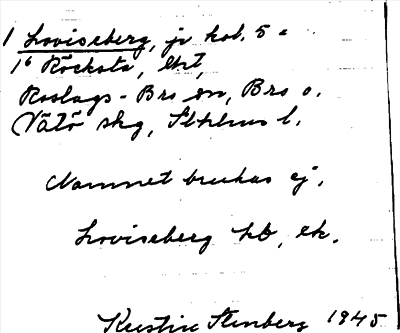 1 Loviseberg, jr kol. 5 a
1⁶ Röcksta, ekt,
Roslags-Bro sn, Bro o.
Vätö skg, Sthlms l.
Namnet brukas ej.
Loviseberg kb, ek.
Kerstin Stenberg 1945